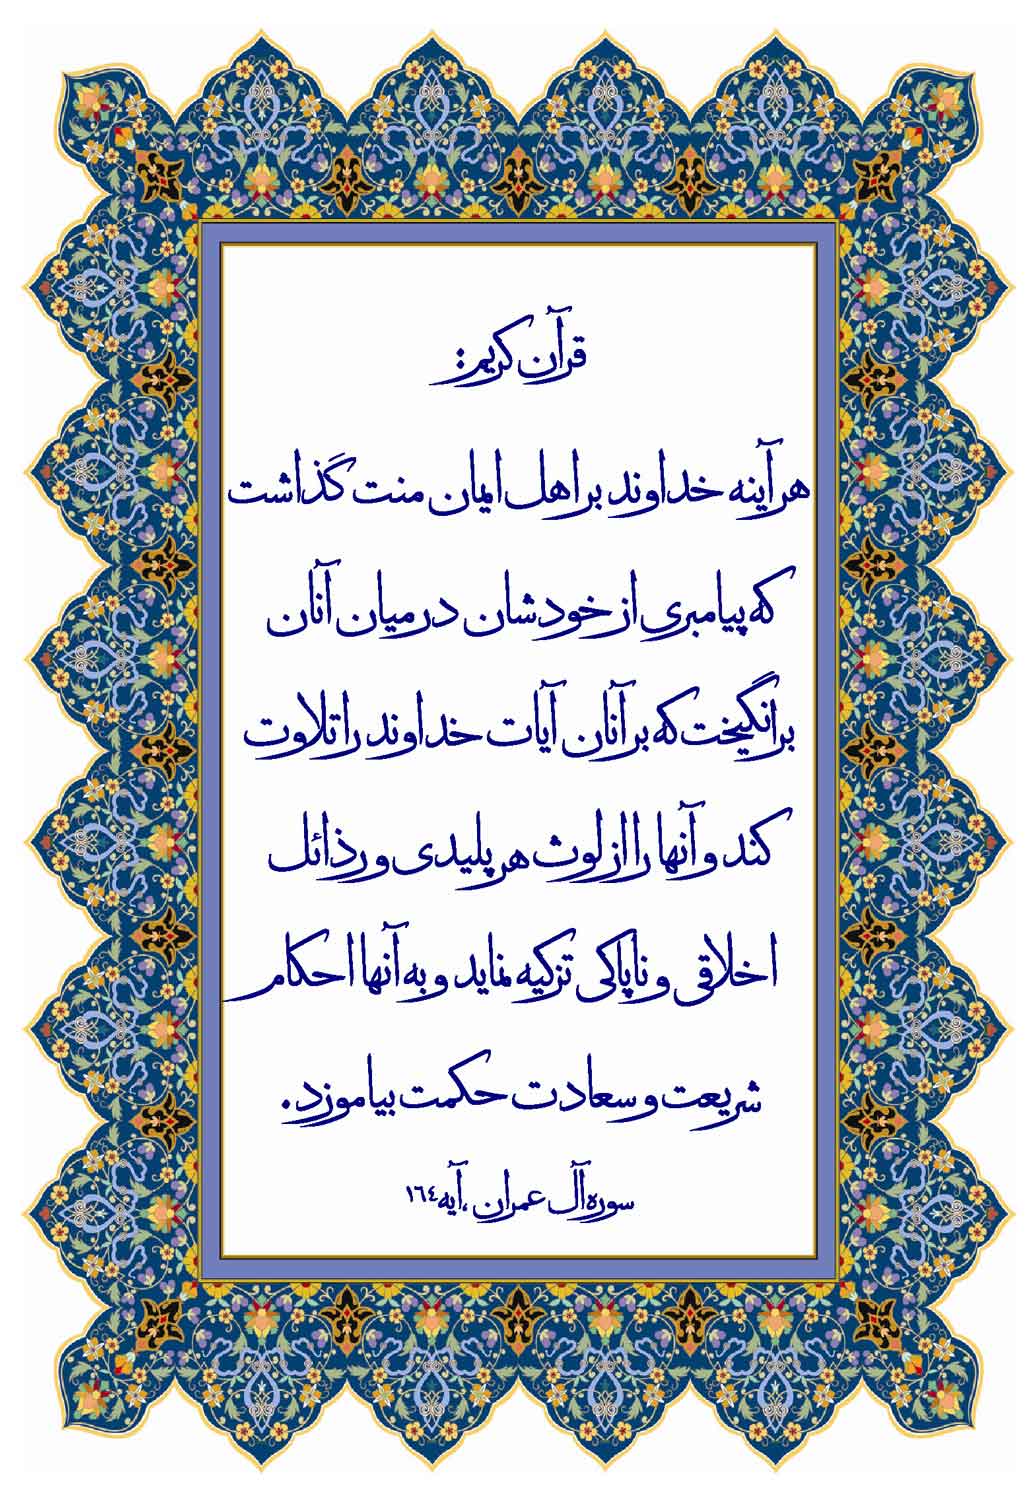 قرآن کریم:
هر آینه خداوند بر اهل ایمان منت گذاشت
که پیامبری از خودشان در میان آنان
برانگیخت که بر آنان آیات خداوند را تلاوت
کند و آنها را از لوث هر پلیدی و رذائل
اخلاقی و ناپاکی تزکیه نماید و به آنها احکام
شریعت و سعادت حکمت بیاموزد.
سوره آل عمران ،آیه ١٦٤